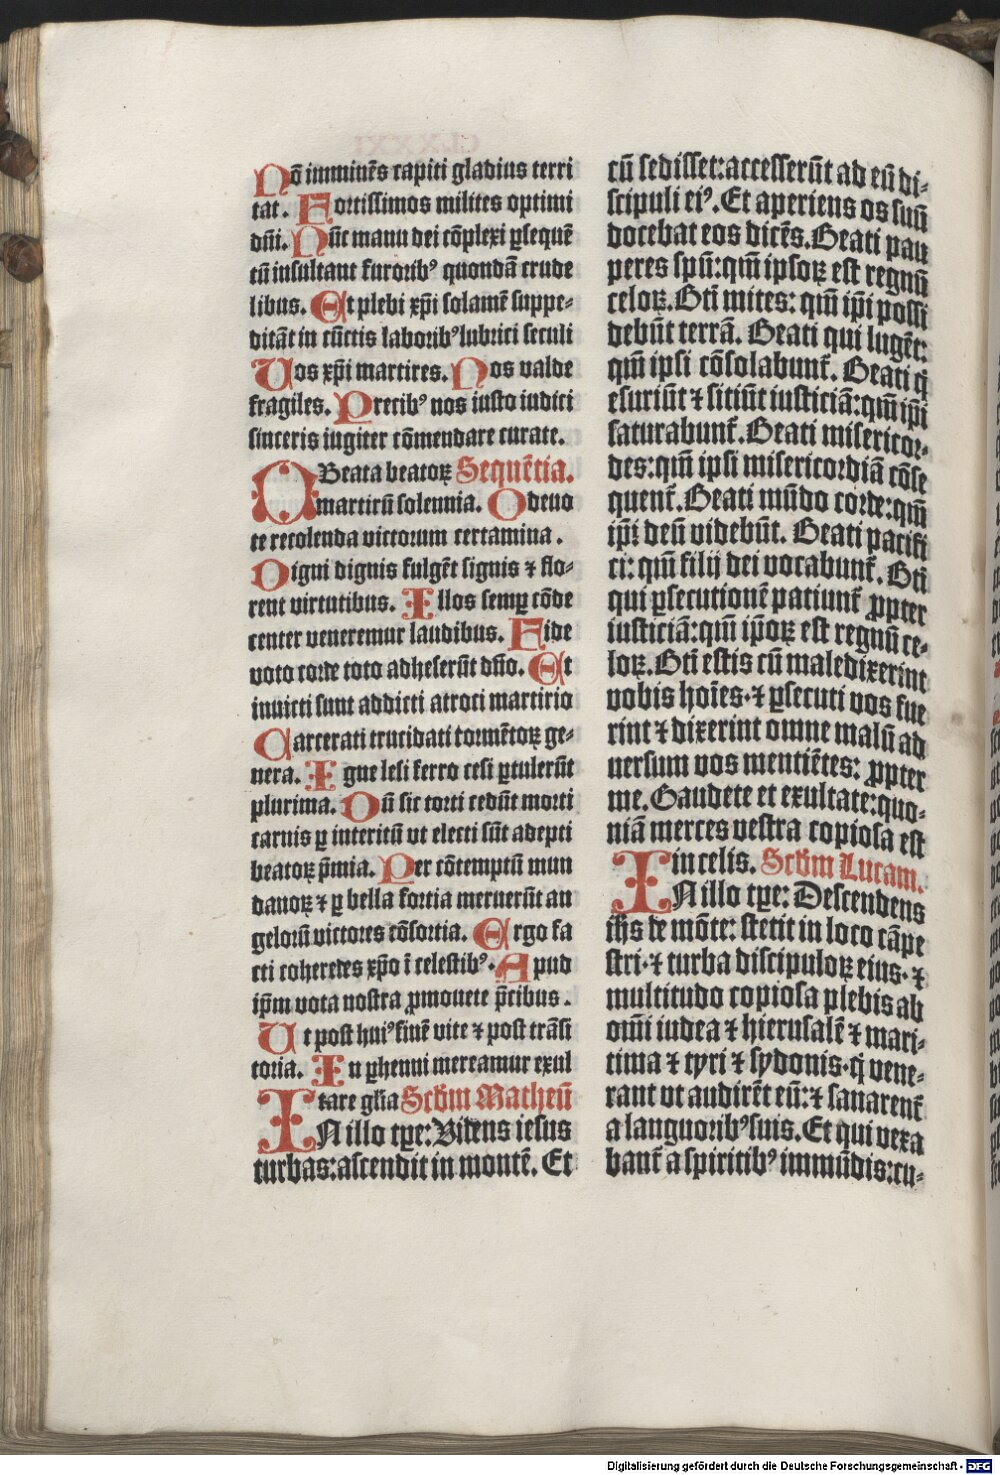 Nō imminēs capiti gladius terri
tat. Fortissimos milites optimi
dñi. Nūc manu dei cōplexi ꝑsequē
tū insultant furoribꝰ quondā crude
libus. Et plebi xp̄i solamē suppe-
ditāt in cūctis laboribꝰ lubrici seculi
Vos xp̄i martires. Nos valde
fragiles. Precibꝰ nos iusto iudici
sinceris iugiter cōmendare curate.
O Beata beatoꝝ Sequētia.
martirū solennia. O deuo
te recolenda victorum certamina.
Digni dignis fulgēt signis ⁊ flo-
rent virtutibus. Illos semꝑ cōde
center veneremur laudibus. Fide
voto corde toto adheserūt dño. Et
inuicti sunt addicti atroci martirio
Carcerati trucidati tormētoꝝ ge-
nera. Igne lesi ferro cesi ꝑtulerūt
plurima. Dū sic torti cedūt morti
carnis ꝑ interitū vt electi sūt adepti
beatoꝝ p̄mia. Per cōtemptū mun
danoꝝ ⁊ ꝑ bella fortia meruerūt an
gelorū victores cōsortia. Ergo fa
cti coheredes xp̄o ī celestibꝰ. Apud
ip̄m vota nostra ꝓmouete p̄cibus.
Ut post huiꝰ finē vite ⁊ post trāsi
toria. In ꝑhenni mereamur exul
tare gl̄ia Scd̄m Matheū
IN illo tꝑe: Videns iesus
turbas: ascendit in montē. Et
cū sedisset: accesserūt ad eū di-
scipuli eiꝰ. Et aperiens os suū
docebat eos dicēs. Beati pau
peres spū: qm̄ ipsoꝝ est regnū
celoꝝ. Bt̄i mites: qm̄ ip̄i possi
debūt terrā. Beati qui lugēt:
qm̄ ipsi cōsolabunt̄. Beati q̄
esuriūt ⁊ sitiūt iusticiā: qm̄ ip̄i
saturabunt̄. Beati misericor-
des: qm̄ ipsi misericordiā cōse
quent̄. Beati mūdo corde: qm̄
ip̄i deū videbūt. Beati pacifi
ci: qm̄ filij dei vocabunt̄. Bt̄i
qui ꝑsecutionē patiunt̄ ꝓpter
iusticiā: qm̄ ip̄oꝝ est regnū ce-
loꝝ. Bt̄i estis cū maledixerint
vobis hoīes. ⁊ ꝑsecuti vos fue
rint ⁊ dixerint omne malū ad
uersum vos mentiētes: ꝓpter
me. Gaudete et exultate: quo-
niā merces vestra copiosa est
in celis. Scd̄m Lucam.
IN illo tꝑe: Descendens
ih̄s de mōte: stetit in loco cāpe
stri. ⁊ turba discipuloꝝ eius. ⁊
multitudo copiosa plebis ab
om̄i iudea ⁊ hierusalē ⁊ mari-
tima ⁊ tyri ⁊ sydonis. q̄ vene-
rant vt audirēt eū: ⁊ sanarent̄
a languoribꝰ suis. Et qui vexa
bant̄ a spiritibꝰ immūdis: cu-
Digitalisierung gefördert durch die Deutsche Forschungsgemeinschaft - DFG